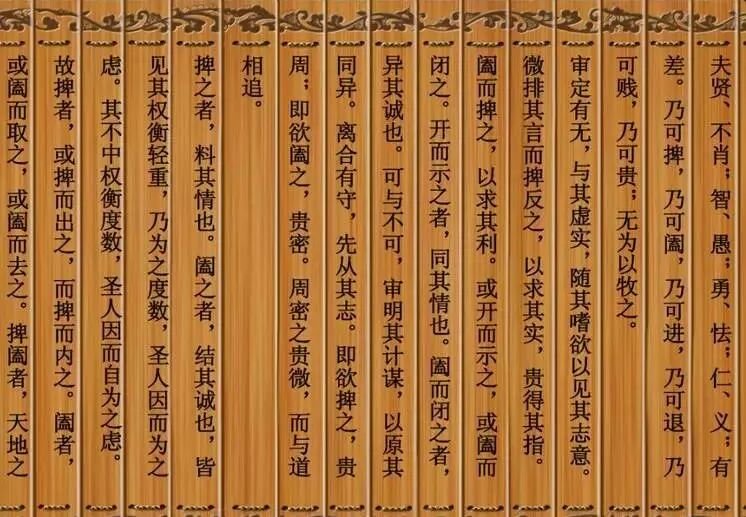 夫贤、不肖；智、愚；勇、怯；仁、义；有
差。乃可捭，乃可阖，乃可进，乃可退，乃
可贱，乃可贵；无为以牧之。
审定有无，与其虚实，随其嗜欲以见其志意。
微排其言而捭反之，以求其实，贵得其指。
阖而捭之，以求其利。或开而示之，或阖而
闭之。开而示之者，同其情也。阖而闭之者，
异其诚也。可与不可，审明其计谋，以原其
同异。离合有守，先从其志。即欲捭之，贵
周；即欲阖之，贵密。周密之贵微，而与道
相追。
捭之者，料其情也。阖之者，结其诚也，皆
见其权衡轻重，乃为之度数，圣人因而为之
虑。其不中权衡度数，圣人因而自为之虑。
故捭者，或捭而出之，而捭而内之。阖者，
或阖而取之，或阖而去之。捭阖者，天地之